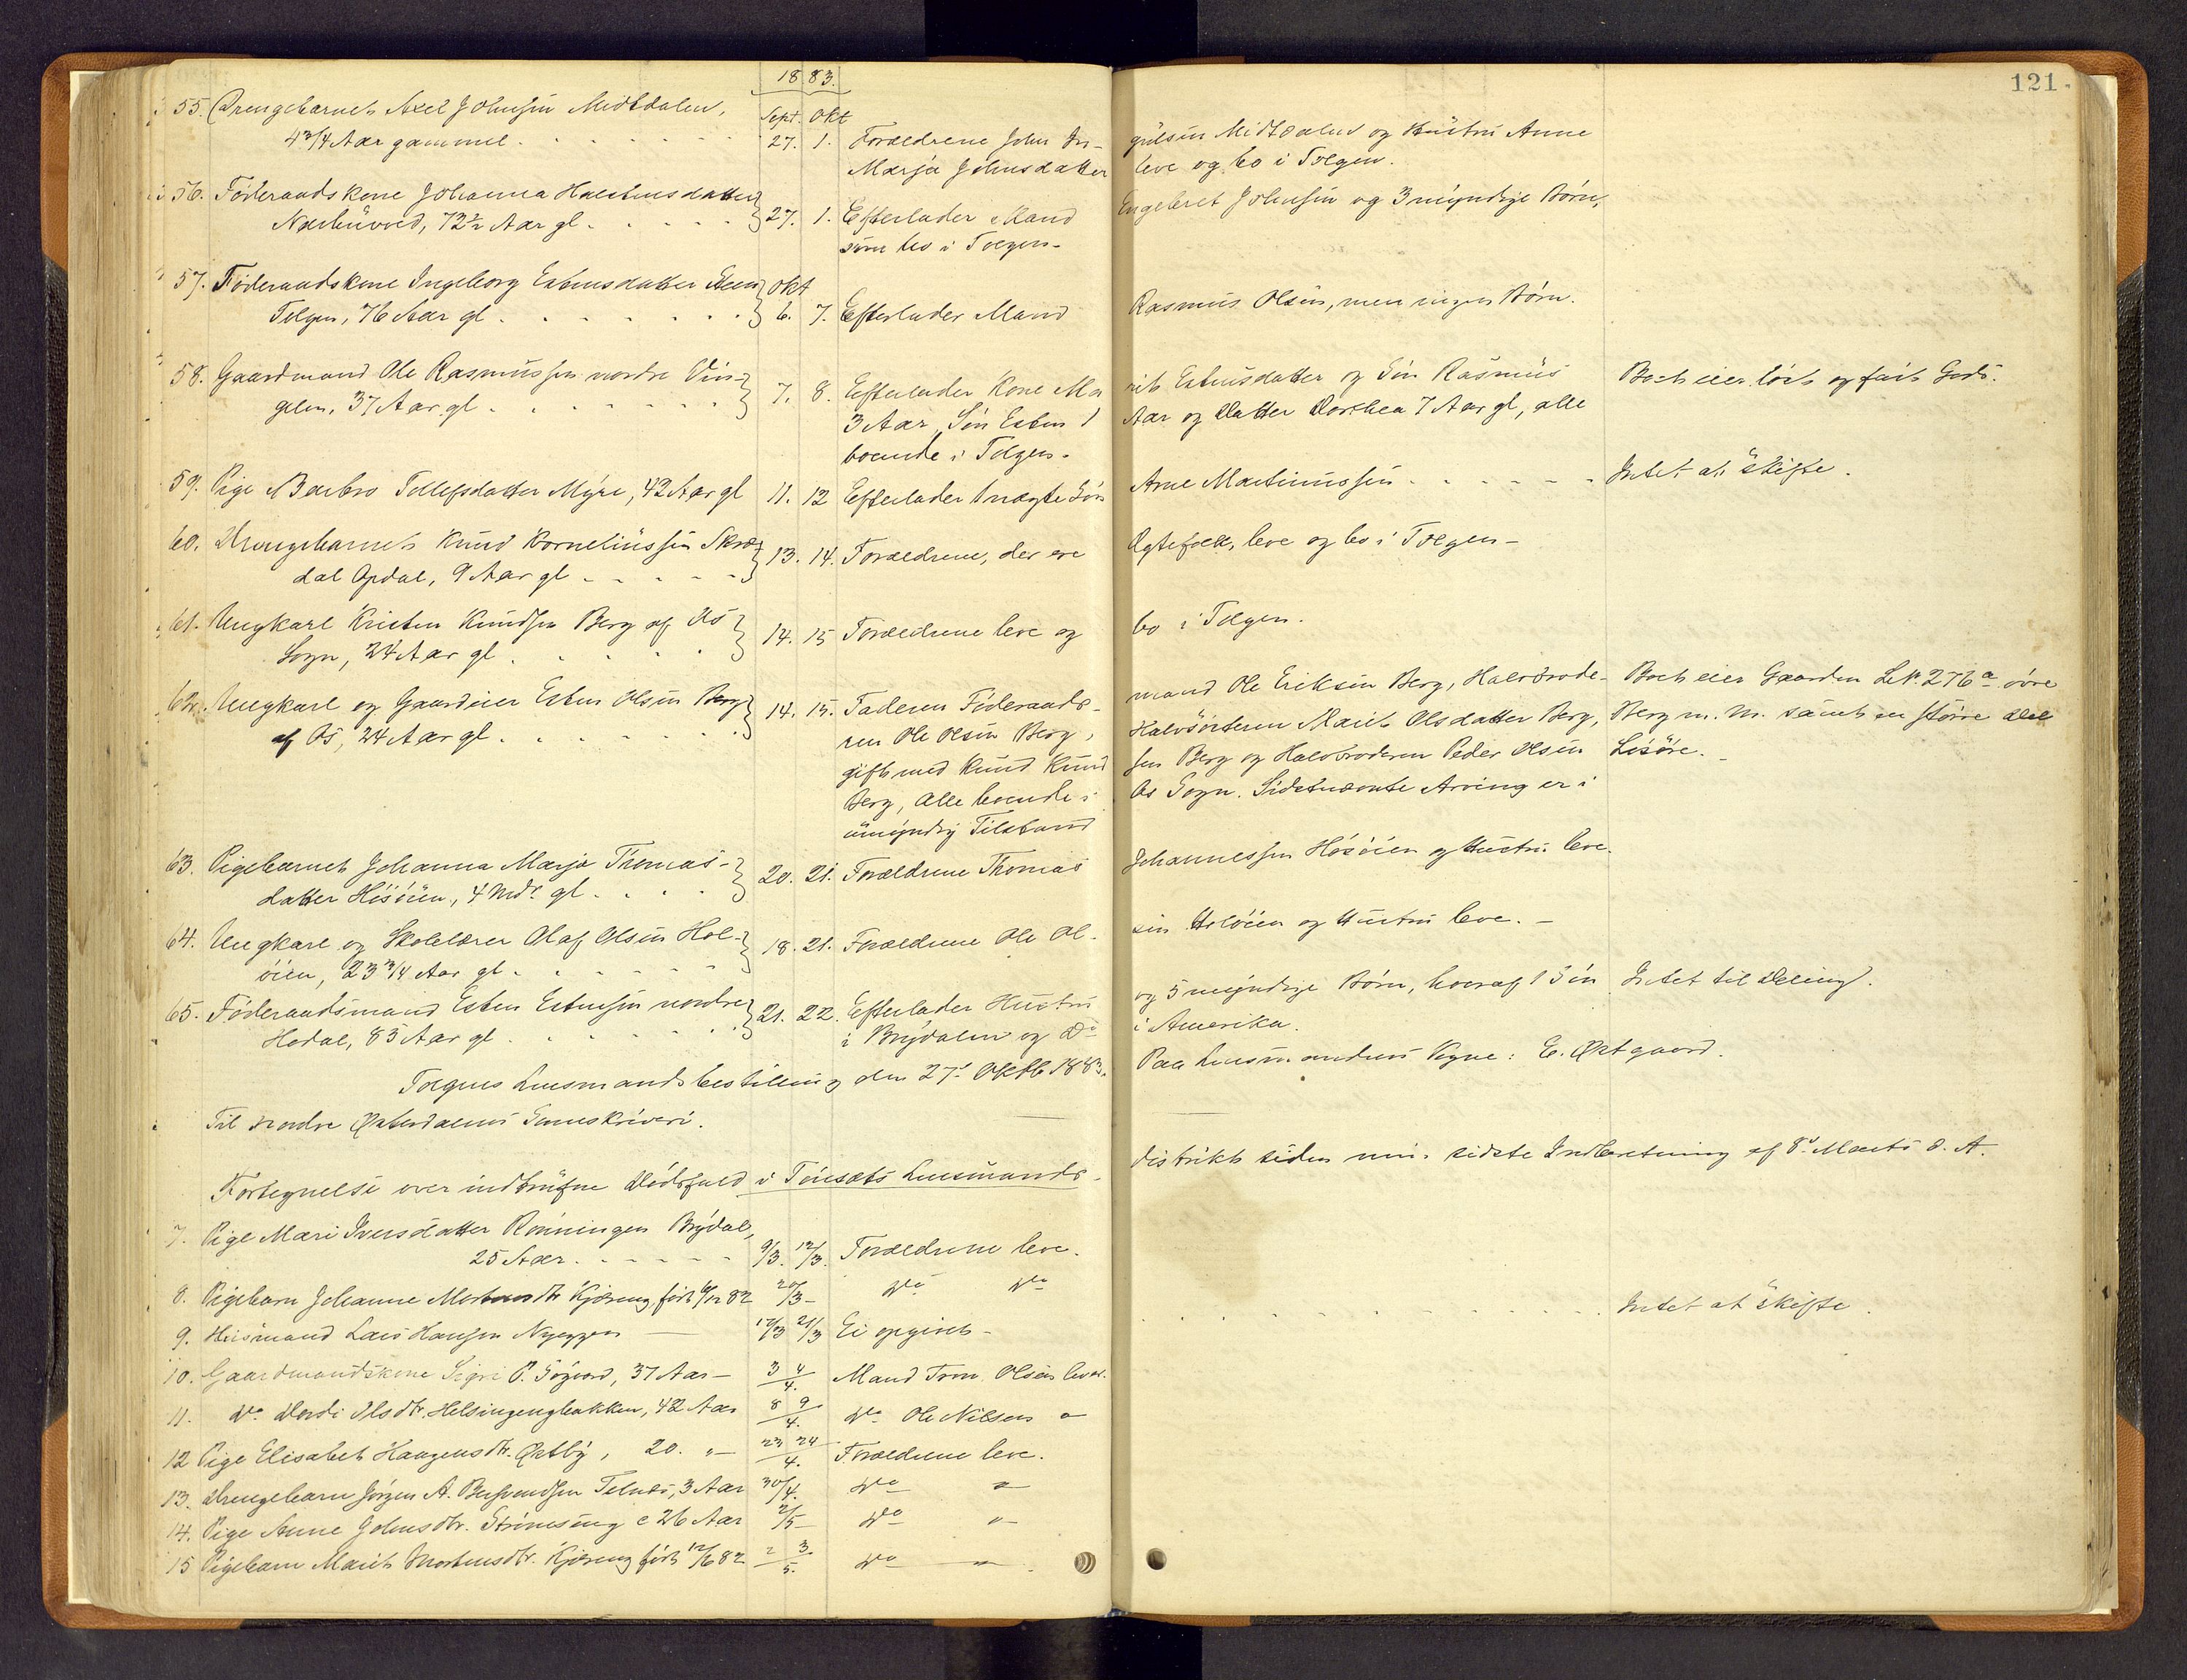 121.
1883.
Sept. Okt
55. Drengebarnet Axel Johnsen Midtdalen,
4 3/4 Aar gammel. 27. 1. Forældrene John In- gulsen Midtdalen og Hustru Anne
Marja Johnsdatter leve og bo i Tolgen.
56. Föderaadskone Johanna Halstensdatter Engebret Johnsen og 3 myndige Börn,
72 1/2 Aar gl. 27. 1. Efterlader Mand
som bo i Tolgen.
57. Föderaadskone Ingeborg Estensdatter Okt
Tolgen, 76 Aar gl. 6. 7. Efterlader Mand Rasmus Olsen, men ingen Börn.
58. Gaardmand Ole Rasmussen nordre Vin- 7. 8. Efterlader Kone Ma rit Estensdatter og Sön Rasmus Boet eier löst og fast Gods.
gelen, 37 Aar gl. 3 Aar, Sön Esten 1 Aar og Datter Dorthea 7 Aar gl, alle
boende i Tolgen.
59. Pige Barbro Tollefsdatter Myre, 42 Aar gl 11. 12 Efterlader 1 uægte Sön Arne Martinussen Intet at skifte.
60. Drengebarnet Knud Korneliussen 13. 14. Forældrene, der ere Ægtefolk, leve og bo i Tolgen
dal Opdal, 9 Aar gl
61. Ungkarl Kristen Knudsen Berg af Os 14. 15 Forældrene leve og bo i Tolgen.
Sogn, 24 Aar gl.
62. Ungkarl og Gaardeier Esten Olsen Berg 14. 15. Faderen Föderaads- mand Ole Eriksen Berg, Halvbrode- Boet eier Gaarden L.No. 276a övre
af Os, 24 Aar gl. ren Ole Olsen Berg, Halvsösteren Marit Olsdatter Berg, Berg m. m. samt en större Del
gift med Knud Knud sen Berg og Halvbroderen Peder Olsen Lösöre.
Berg, alle boende i Os Sogn. Sidstnævnte Arving er i
umyndig Tilstand
63. Pigebarnet Johanna Marja Thomas- 20. 21. Forældrene Thomas Johannessen Hösöien og Hustru leve.
datter Hösöien, 4 Mdr. gl.
64. Ungkarl og Skolelærer Olaf Olsen Hol- 18. 21. Forældrene Ole Ol- sen Holöien og Hustru leve.
öien, 23 3/4 Aar gl.
65. Föderaadsmand Esten Estensen nordre 21. 22. Efterlader Hustru og 5 myndige Börn, hvoraf 1 Sön Intet til Deling.
Hodal, 83 Aar gl. i Brydalen og Do i Amerika.
Tolgens Lensmandsbestilling den 27de Oktb 1883. Paa Lensmandens Vegne: E. Östgaard.
Til nordre Østerdalens Sorenskriveri.
Fortegnelse over indtrufne Dödsfald i Tönsets Lensmands- distrikt siden min sidste Indberetning af 8de Marts d. A.
7. Pige Mari Iversdatter Rönningen Brydal,
25 Aar. 9/3. 12/3. Forældrene leve.
8. Pigebarn Johanne Mortensdtr Kjöreng, födt 6/12 82 20/3 Do Do
9. Husmand Lars Hansen Nyeggen 12/3 21/3 Ei opgivet Intet at skifte.
10. Gaardmandskone Sigri P. 37 Aar 3 4/4. Mand Tron Olsen lever.
11. Do Dordi Olsdtr. Helsingengbakken, 42 Aar 8 9/4. Do Ole Nilsen
12 Pige Elisabet Haagensdtr. Östby, 20. " 23 24/4. Forældrene leve.
13. Drengebarn Jörgen A. Telnes, 3 Aar 30/4. Do "
14. Pige Anne Johnsdtr. Strömseng c 26 Aar 2/5 Do "
15 Pigebarn Marit Mortensdtr. Kjöreng födt 12/6 82 2 3/5. Do "